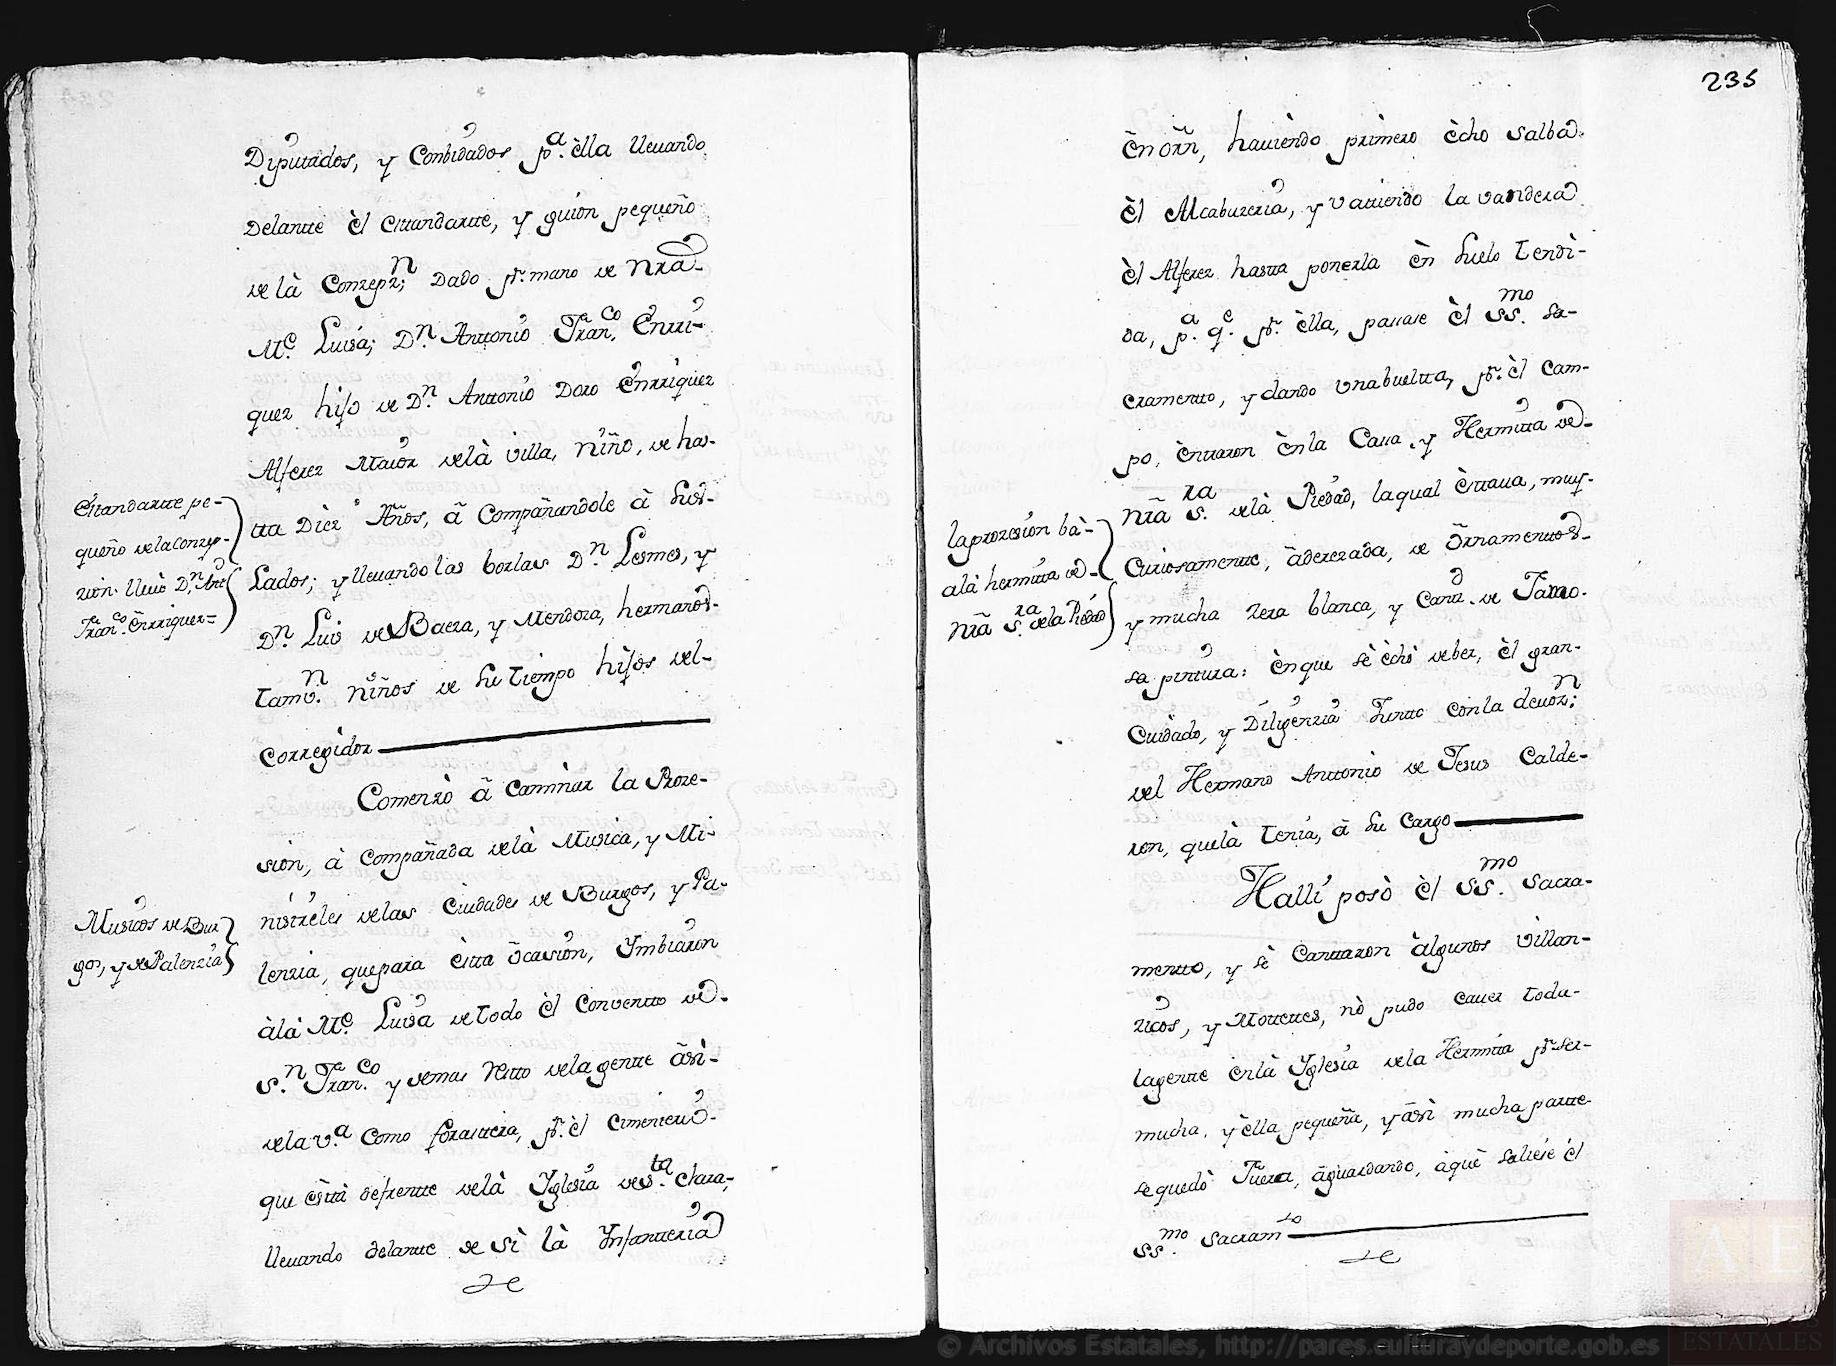 Diputados, y Conbidados p.ª èlla lleuando
delante èl esttandartte, y guion pequeño
de là Conzepz.ⁿ; Dado pʳ. mano de Nrã
M.ᵉ Luisa; D.ⁿ Anttonio Fran.ᶜᵒ Enrri-
quez hijo de D.ⁿ Anttonio Doro Enrriquez
Alferez Maior de là villa, Niño, de has-
tta Diez Años, ã Compañandole â sus-
Lados; y lleuando las borlas D.ⁿ Lesmes, y
D.ⁿ Luis de Baeza, y Mendoza, hermanos-
tamv.ⁿ Niños de su tiempo hijos del-
Corregidor
Esttandartte pe-
queño de la Conzep-
zion. lleuò D.ⁿ Antt
Fran.ᶜᵒ Enrriquez=
Comenzò ã Caminar la Proze-
sion, à Compañada de là Musica, y Mi-
nistriles de las Ciudades de Burgos, y Pa-
lenzia, que para èstta òcasion, Ymbiaron
Musicos de Bur
gos, y de Palenzia
à la M.ᵉ Luisa de todo èl Conventto de-
S.ⁿ Fran.ᶜᵒ y demas Restto de la gentte ãsi-
de la v.ª Como forastteria, pʳ. èl Cimenterio-
que èsttà defrentte de là Yglesia de S.ᵗᵃ Clara,
lleuando delantte de si là Ynfantteria
235
èn orñ, hauiendo primero ècho salba
èl Alcabuzeria, y vattiendo la vandera
èl Alferez hastta ponerla èn suelo tendi-
da, p.ª q.ᵉ pʳ. èlla, passase èl SS.ᵐᵒ Sa-
cramentto, y dando vna bueltta, pʳ. èl Cam-
po, èntraron èn la Cassa, y Hermitta de-
Nrã S.ʳᵃ de là Piedad, la qual èsttaua, muy-
Curiosamentte, âderezada, de òrnamenttos-
y mucha zera blanca, y Canttᵈ. de Famo-
sa pintura: èn que sè èchò de ber, èl gran-
Cuidado, y Diligenzia Juntto con la deuoz.ⁿ;
del Hermano Anttonio de Jesus Calde-
ron, que là tenia, â su Cargo
la prozesion bà-
a là hermitta de-
Nrã S.ʳᵃ de la Piedad
Halli posò èl SS.ᵐᵒ Sacra-
mentto, y sè Canttaron àlgunos Villan-
zicos, y Mottettes, nò pudo Cauer toda-
la gentte èn là Yglesia de la Hermitta pʳ. ser-
mucha, y èlla pequeña, y ãsi mucha partte-
se quedò Fuera, ãguardando, à què saliese èl
SS.ᵐᵒ Sacramᵗᵒ
© Archivos Estatales, http://pares.culturaydeporte.gob.es
AE
ESTATALES